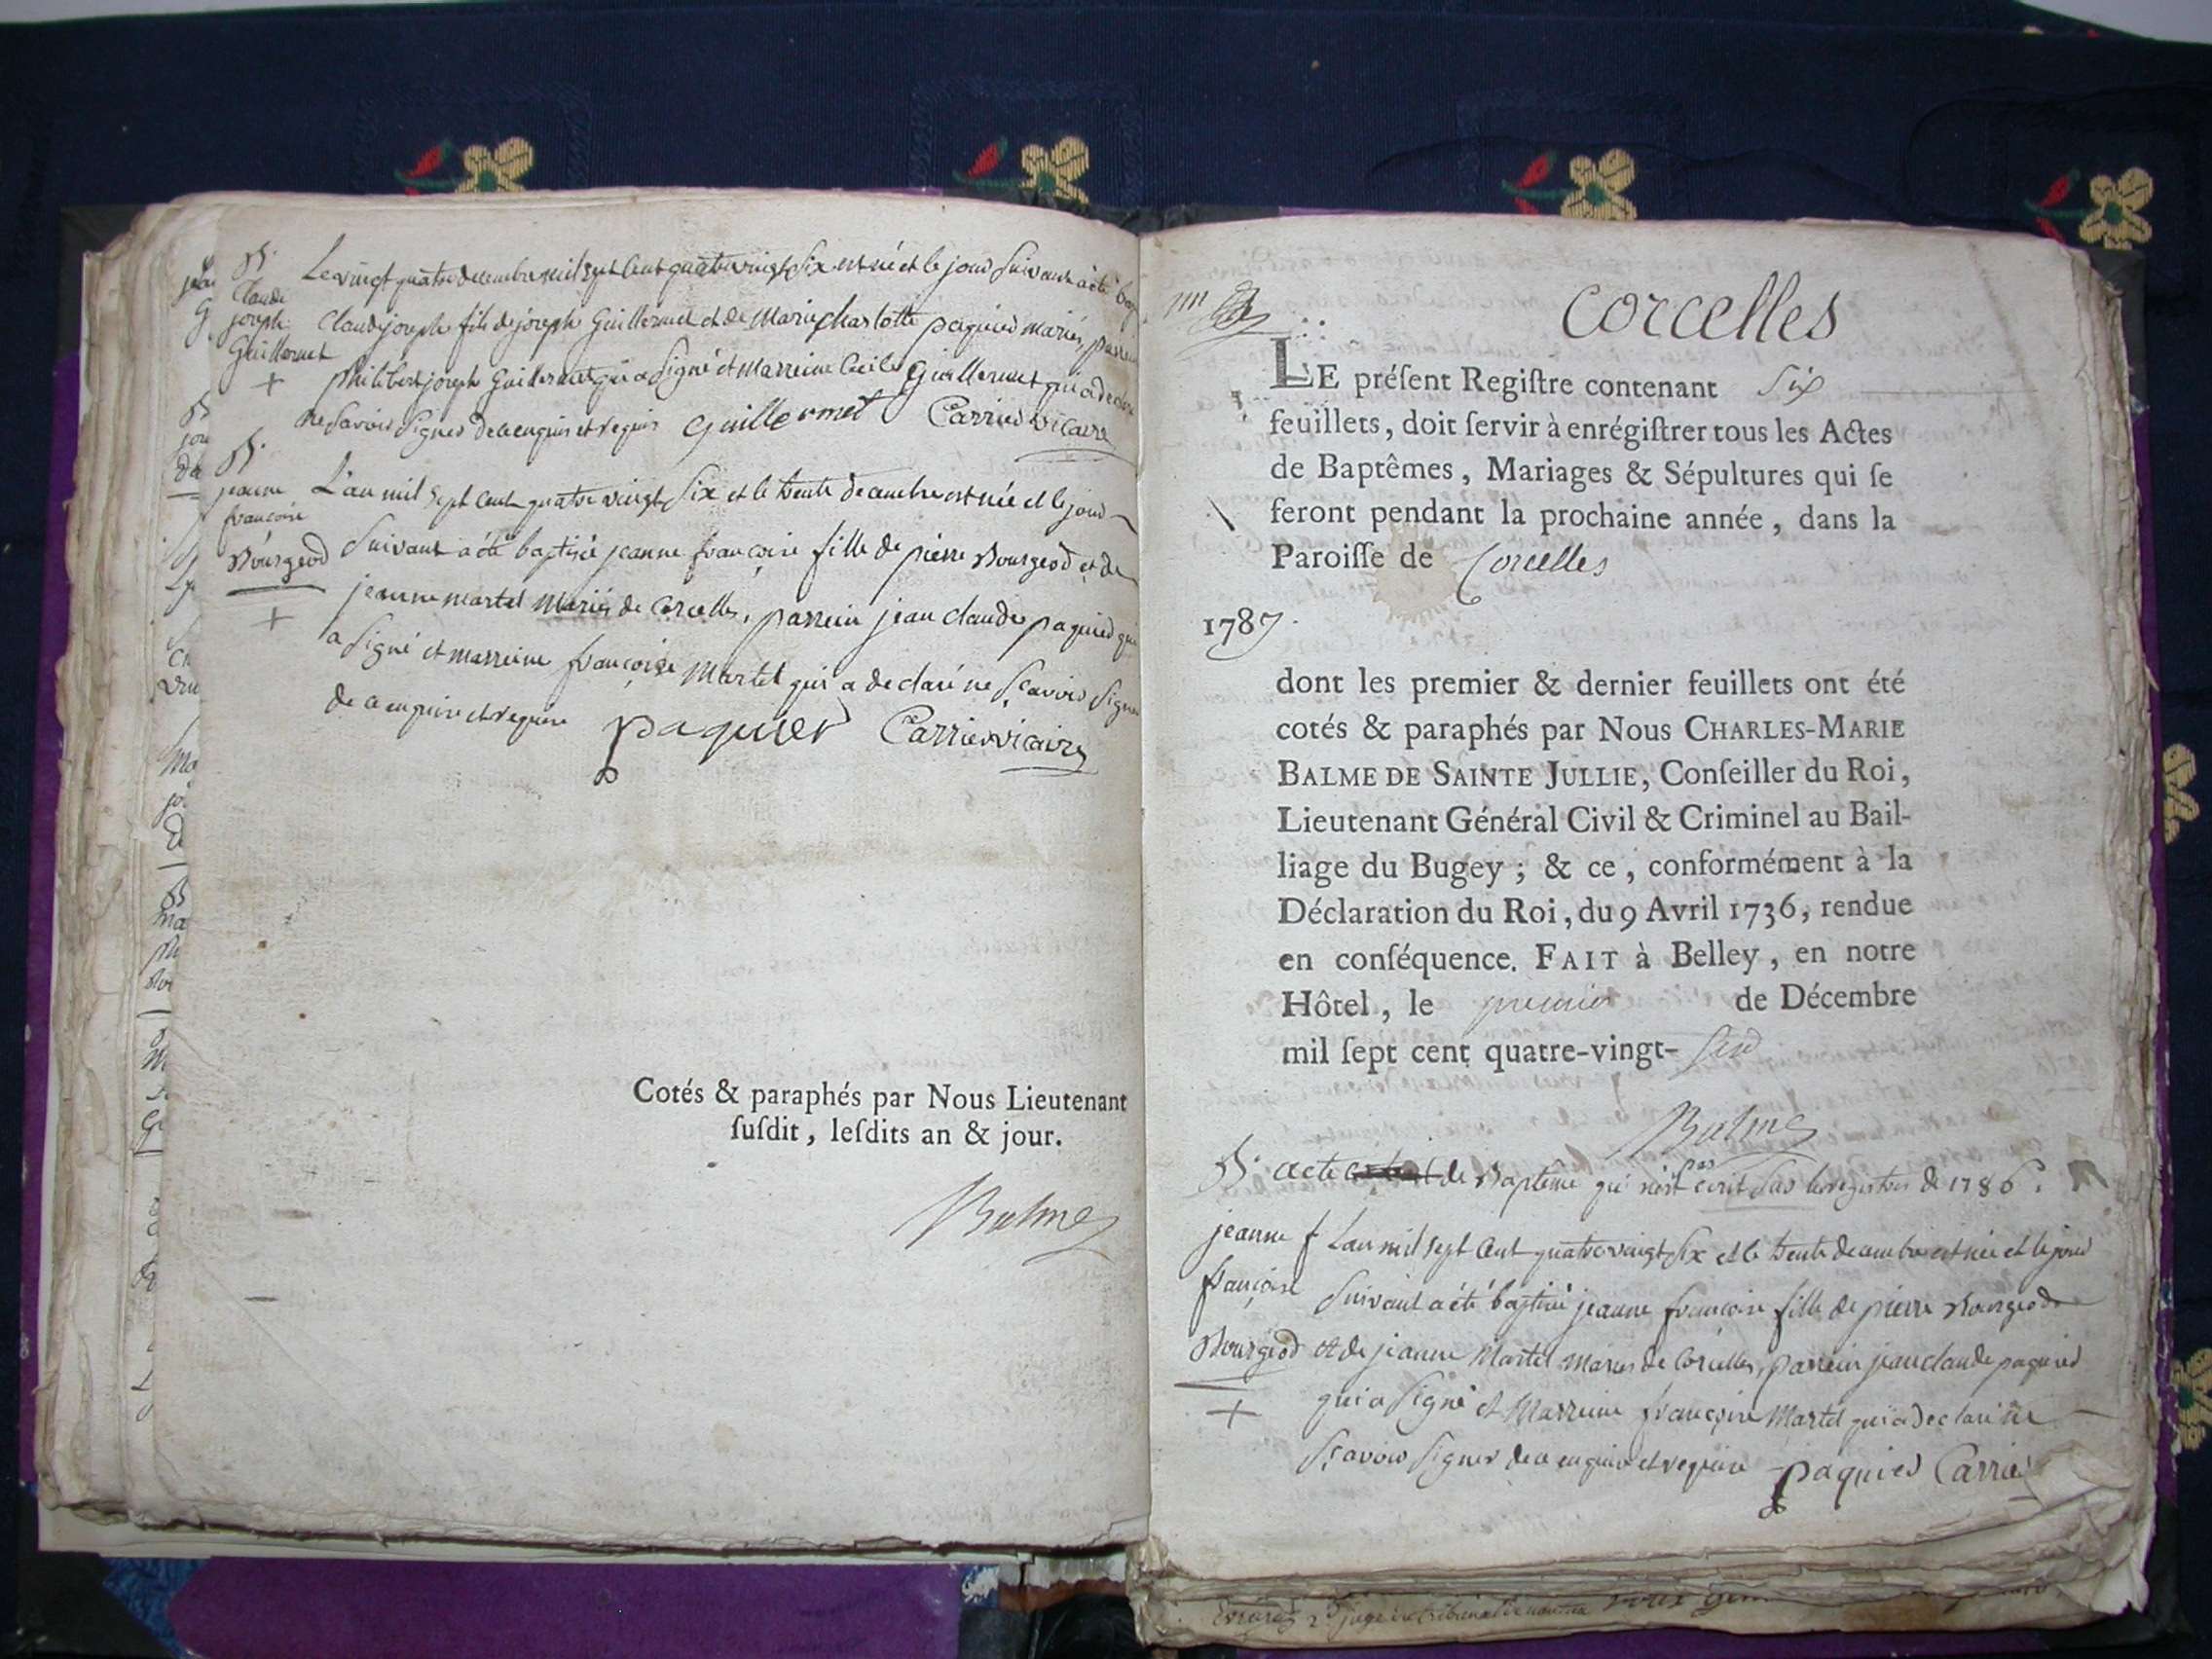 B.
Claude
joseph
Guillermet
+
Le vingt quatre decembre mil sept cent quatre vingt Six est né et le jour Suivant a été
Claude joseph fils de joseph Guillermet et de Marie charlotte paquier mariés,
philibert joseph Guillermet qui a Signé et Marreine Cecile Guillermet qui a declaré
ne Savoir Signer de ce enquis et requis Guillermet Carrier vicaire
B.
jeanne
françoise
Bourgeod
+
L'an mil Sept Cent quatre vingt Six et le trente decembre est née et le jour
Suivant a été baptisée jeanne françoise fille de pierre Bourgeod et de
jeanne martel Mariés de Corcelles, parrein jean claude paquier qui
a Signé et marreine françoise Martel qui a declaré ne Sçavoir Signer
de ce enquise et requise paquier Carrier vicaire
Cotés & paraphés par Nous Lieutenant
ſuſdit, leſdits an & jour.
Balme
corcelles
LE préſent Regiſtre contenant Six
feuillets, doit ſervir à enrégiſtrer tous les Actes
de Baptêmes, Mariages & Sépultures qui ſe
feront pendant la prochaine année, dans la
Paroiſſe de Corcelles
1787.
dont les premier & dernier feuillets ont été
cotés & paraphés par Nous CHARLES-MARIE
BALME DE SAINTE JULLIE, Conſeiller du Roi,
Lieutenant Général Civil & Criminel au Bail-
liage du Bugey ; & ce, conformément à la
Déclaration du Roi, du 9 Avril 1736, rendue
en conſéquence. FAIT à Belley, en notre
Hôtel, le premier de Décembre
mil ſept cent quatre-vingt- Six
Balme
B. acte de Bapteme qui n'est pas ecrit Sur les registres de 1786.
jeanne
françoise
Bourgeod
+
L'an mil Sept Cent quatre vingt Six et le trente decembre est née et le jour
Suivant a été baptisée jeanne françoise fille de pierre Bourgeod
et de jeanne Martel mariés de Corcelles, parrein jean claude paquier
qui a Signé et Marreine françoise Martel qui a declaré ne
Sçavoir Signer de ce enquise et requise paquier Carrier